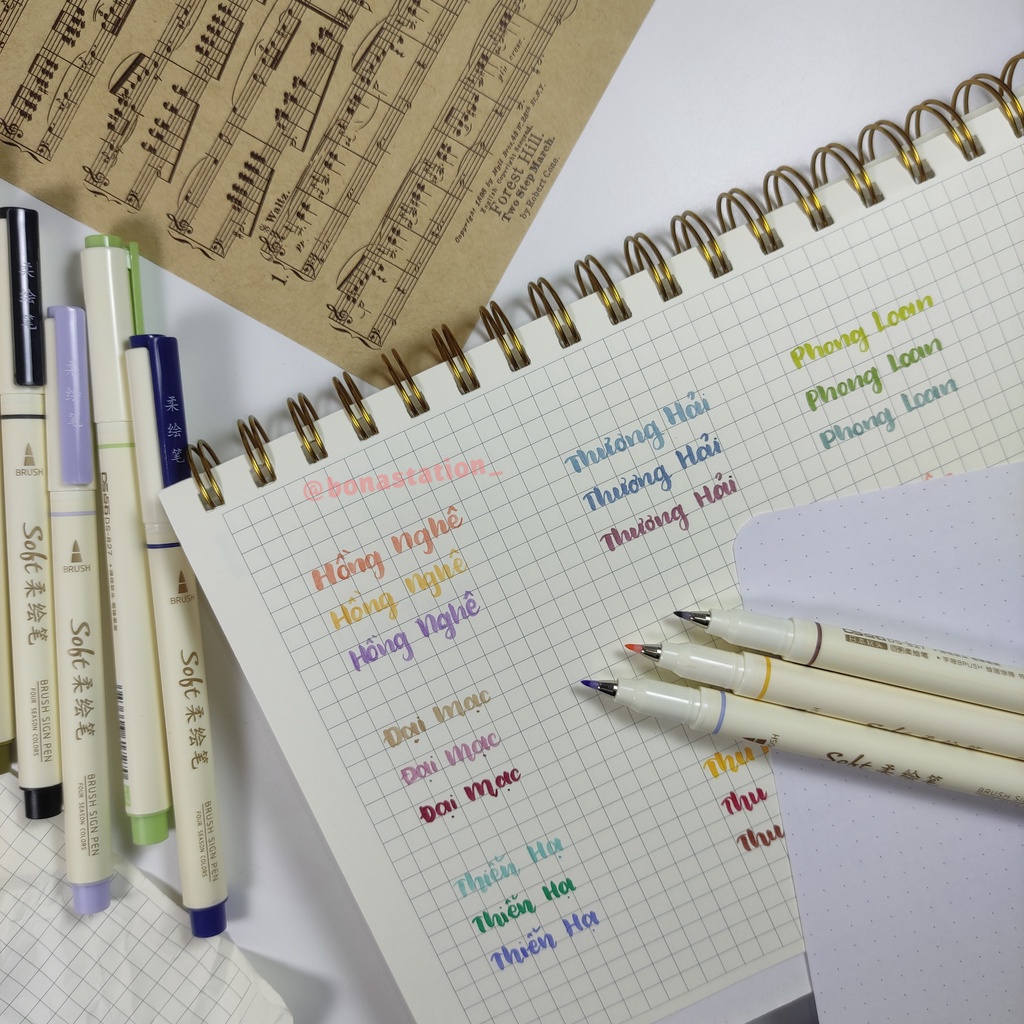 Waltz.
1.
Copyright 1908 by
English Copyright
Forest Hill.
Two Step March.
by Robert Cone.
@bonastation_
Hồng Nghê
Hồng Nghê
Hồng Nghê
Thương Hải
Thương Hải
Thương Hải
Phong Loan
Phong Loan
Phong Loan
Đại Mạc
Đại Mạc
Đại Mạc
Thiên Hạ
Thiên Hạ
Thiên Hạ
Thu
Thu
Thu
BRUSH
Soft 柔绘笔
BRUSH SIGN PEN
FOUR SEASON COLORS
柔绘笔
BRUSH
Soft 柔绘笔
BRUSH SIGN PEN
FOUR SEASON COLORS
DS-827
柔绘笔
BRUSH
Soft 柔绘笔
BRUSH SIGN PEN
FOUR SEASON COLORS
Soft 柔绘笔
BRUSH SIGN